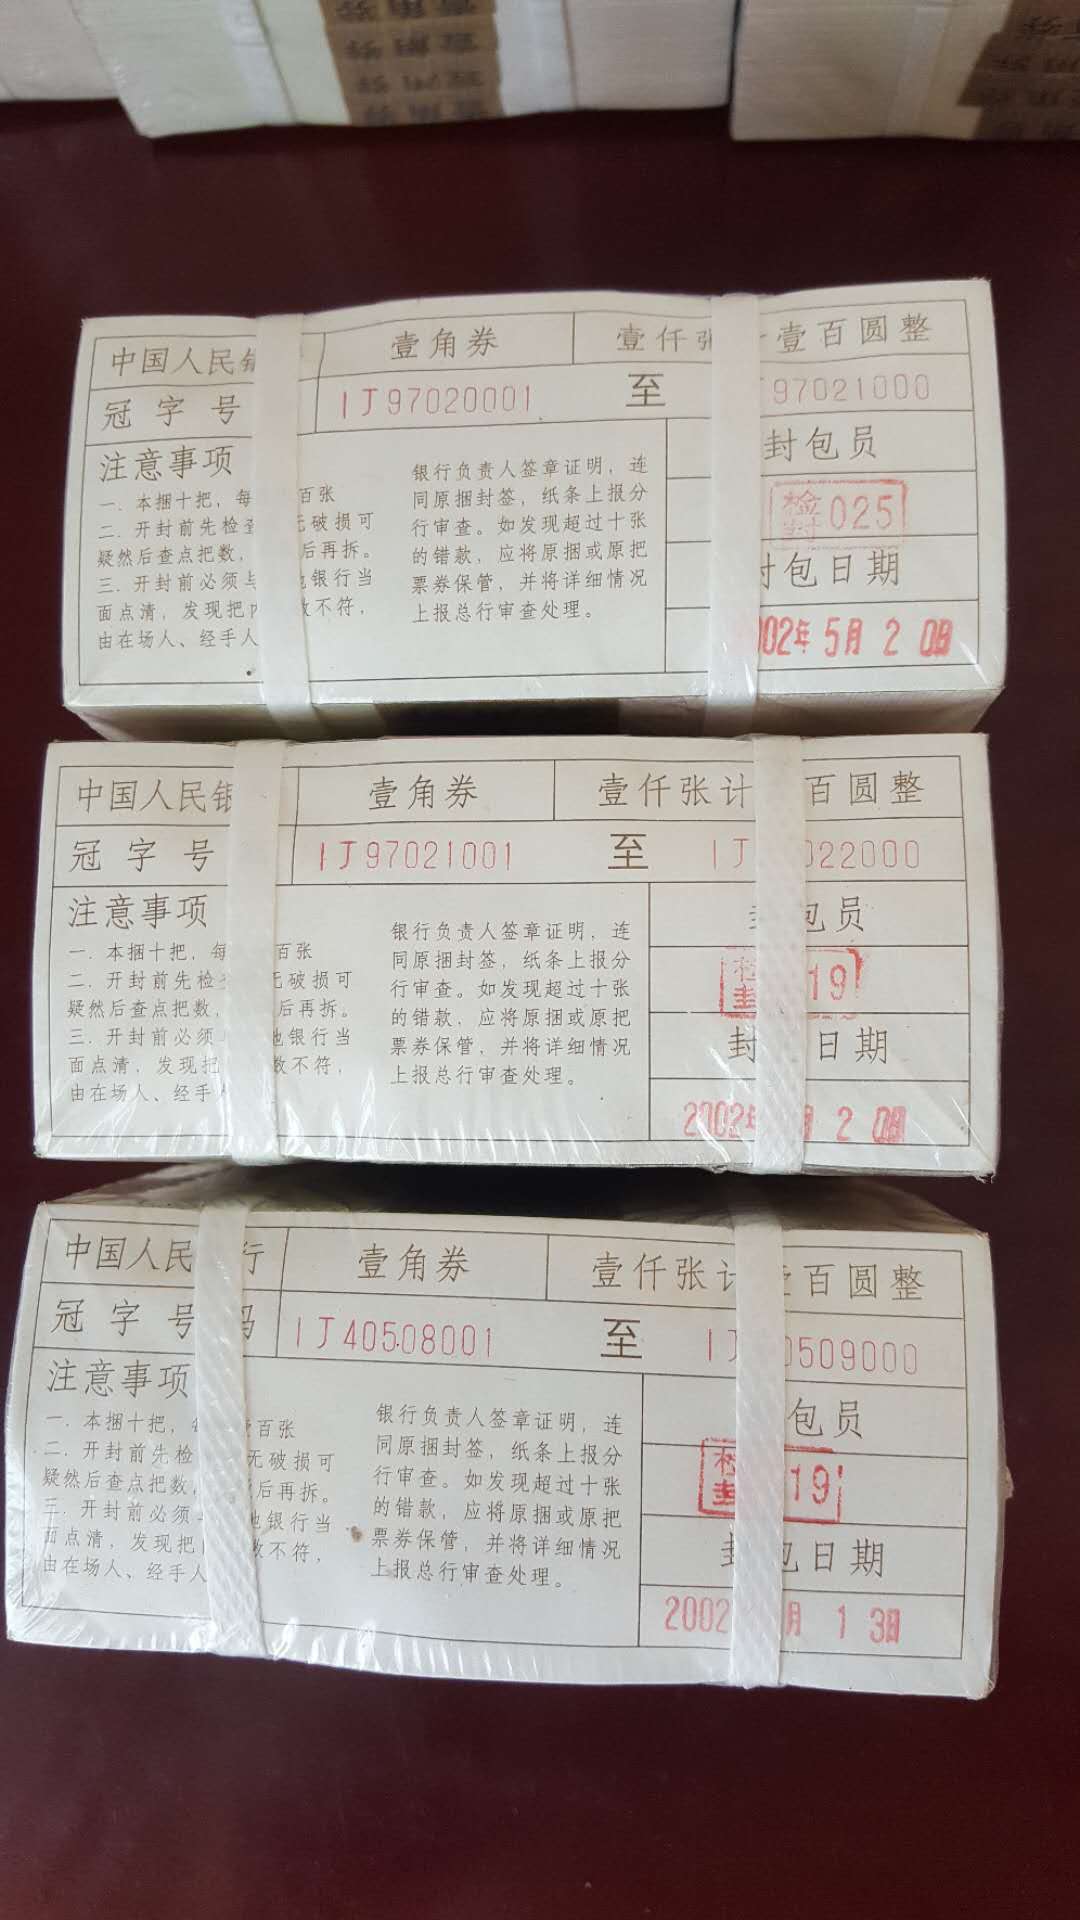 壹角券
壹角券
中国人民 壹角券 壹仟张 壹百圆整
冠字号 IJ97020001 至 97021000
注意事项
一. 本捆十把, 每 百张
二. 开封前先检查 无破损可
疑然后查点把数, 后再拆。
三. 开封前必须与 地银行当
面点清, 发现把内 数不符,
由在场人、经手人
银行负责人签章证明, 连
同原捆封签, 纸条上报分
行审查。如发现超过十张
的错款, 应将原捆或原把
票券保管, 并将详细情况
上报总行审查处理。
封包员
检封 025
封包日期
002年5月20日
中国人民银 壹角券 壹仟张计 百圆整
冠字号 IJ97021001 至 IJ 022000
注意事项
一. 本捆十把, 每 百张
二. 开封前先检 无破损可
疑然后查点把数, 后再拆。
三. 开封前必须 地银行当
面点清, 发现把 数不符,
由在场人、经手
银行负责人签章证明, 连
同原捆封签, 纸条上报分
行审查。如发现超过十张
的错款, 应将原捆或原把
票券保管, 并将详细情况
上报总行审查处理。
包员
检封 19
封 日期
2002年 月20日
中国人民 行 壹角券 壹仟张计 壹百圆整
冠字号码 IJ40508001 至 IJ 0509000
注意事项
一. 本捆十把, 每 壹百张
二. 开封前先检 无破损可
疑然后查点把数, 后再拆。
三. 开封前必须 地银行当
面点清, 发现把 数不符,
由在场人、经手人
银行负责人签章证明, 连
同原捆封签, 纸条上报分
行审查。如发现超过十张
的错款, 应将原捆或原把
票券保管, 并将详细情况
上报总行审查处理。
包员
检封 19
封包日期
2002 月13日